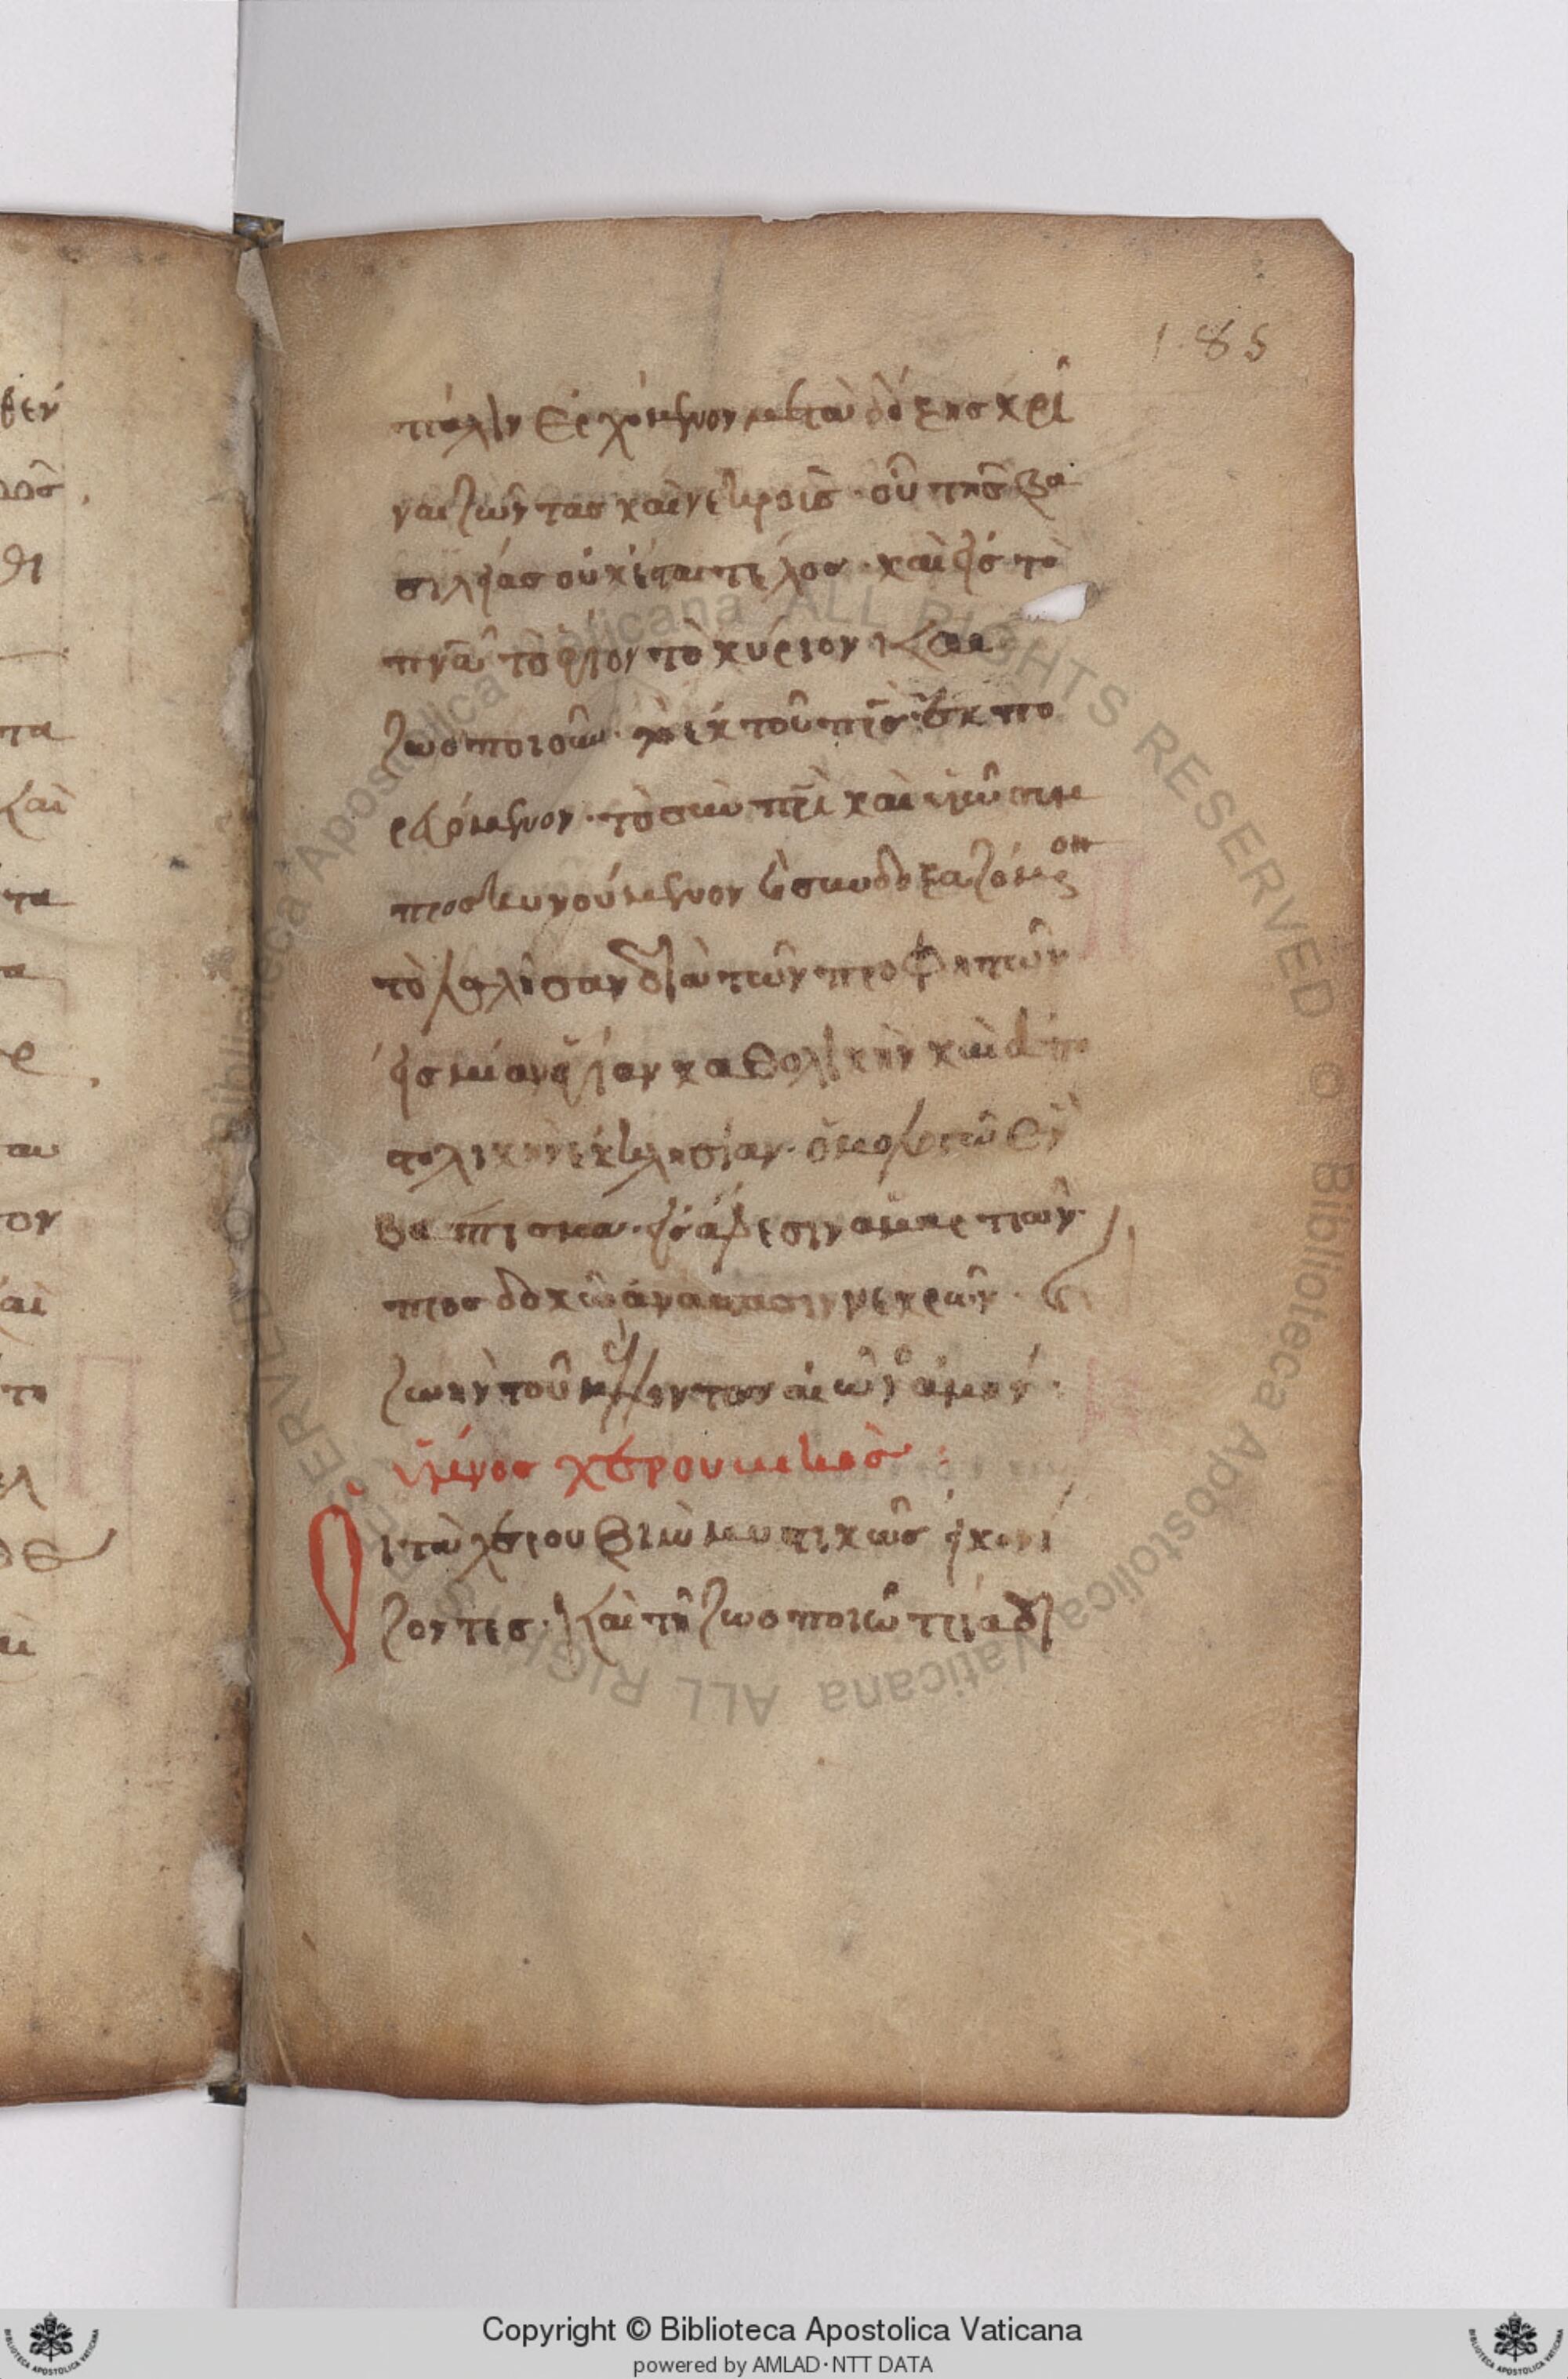 185
πάλιν ἐρχόμενον μετὰ δόξης κρῖ
ναι ζῶντας καὶ νεκρούς· οὗ τῆς βα
σιλείας οὐκ ἔσται τέλος· καὶ εἰς τὸ
πνᾶ τὸ ἅγιον τὸ κύριον καὶ
ζωοποιοῦν· τὸ ἐκ τοῦ πρς ἐκπο
ρευόμενον· τὸ σὺν πρὶ καὶ υἱῶ συμ
προσκυνούμενον καὶ συνδοξαζόμενον
τὸ λαλῆσαν διὰ τῶν προφητῶν
εἰς μίαν ἁγίαν καθολικὴν καὶ ἀπο
στολικὴν ἐκκλησίαν· ὁμολογῶ ἓν
βάπτισμα· εἰς ἄφεσιν ἁμαρτιῶν·
προσδοκῶ ἀνάστασιν νεκρῶν· καὶ
ζωὴν τοῦ μέλλοντος αἰῶνος ἀμήν·
ὕμνος χερουβικὸς
Οἱ τὰ χερουβὶμ μυστικῶς εἰκονί
ζοντες· καὶ τῆ ζωοποιῶ τριάδι
βεν
θι
πα
καὶ
τα
α
ρ
ον
αὶ
τη
Copyright © Biblioteca Apostolica Vaticana
powered by AMLAD·NTT DATA
Biblioteca Apostolica Vaticana ALL RIGHTS RESERVED © Biblioteca Apostolica Vaticana ALL RIGHTS RESERVED ©